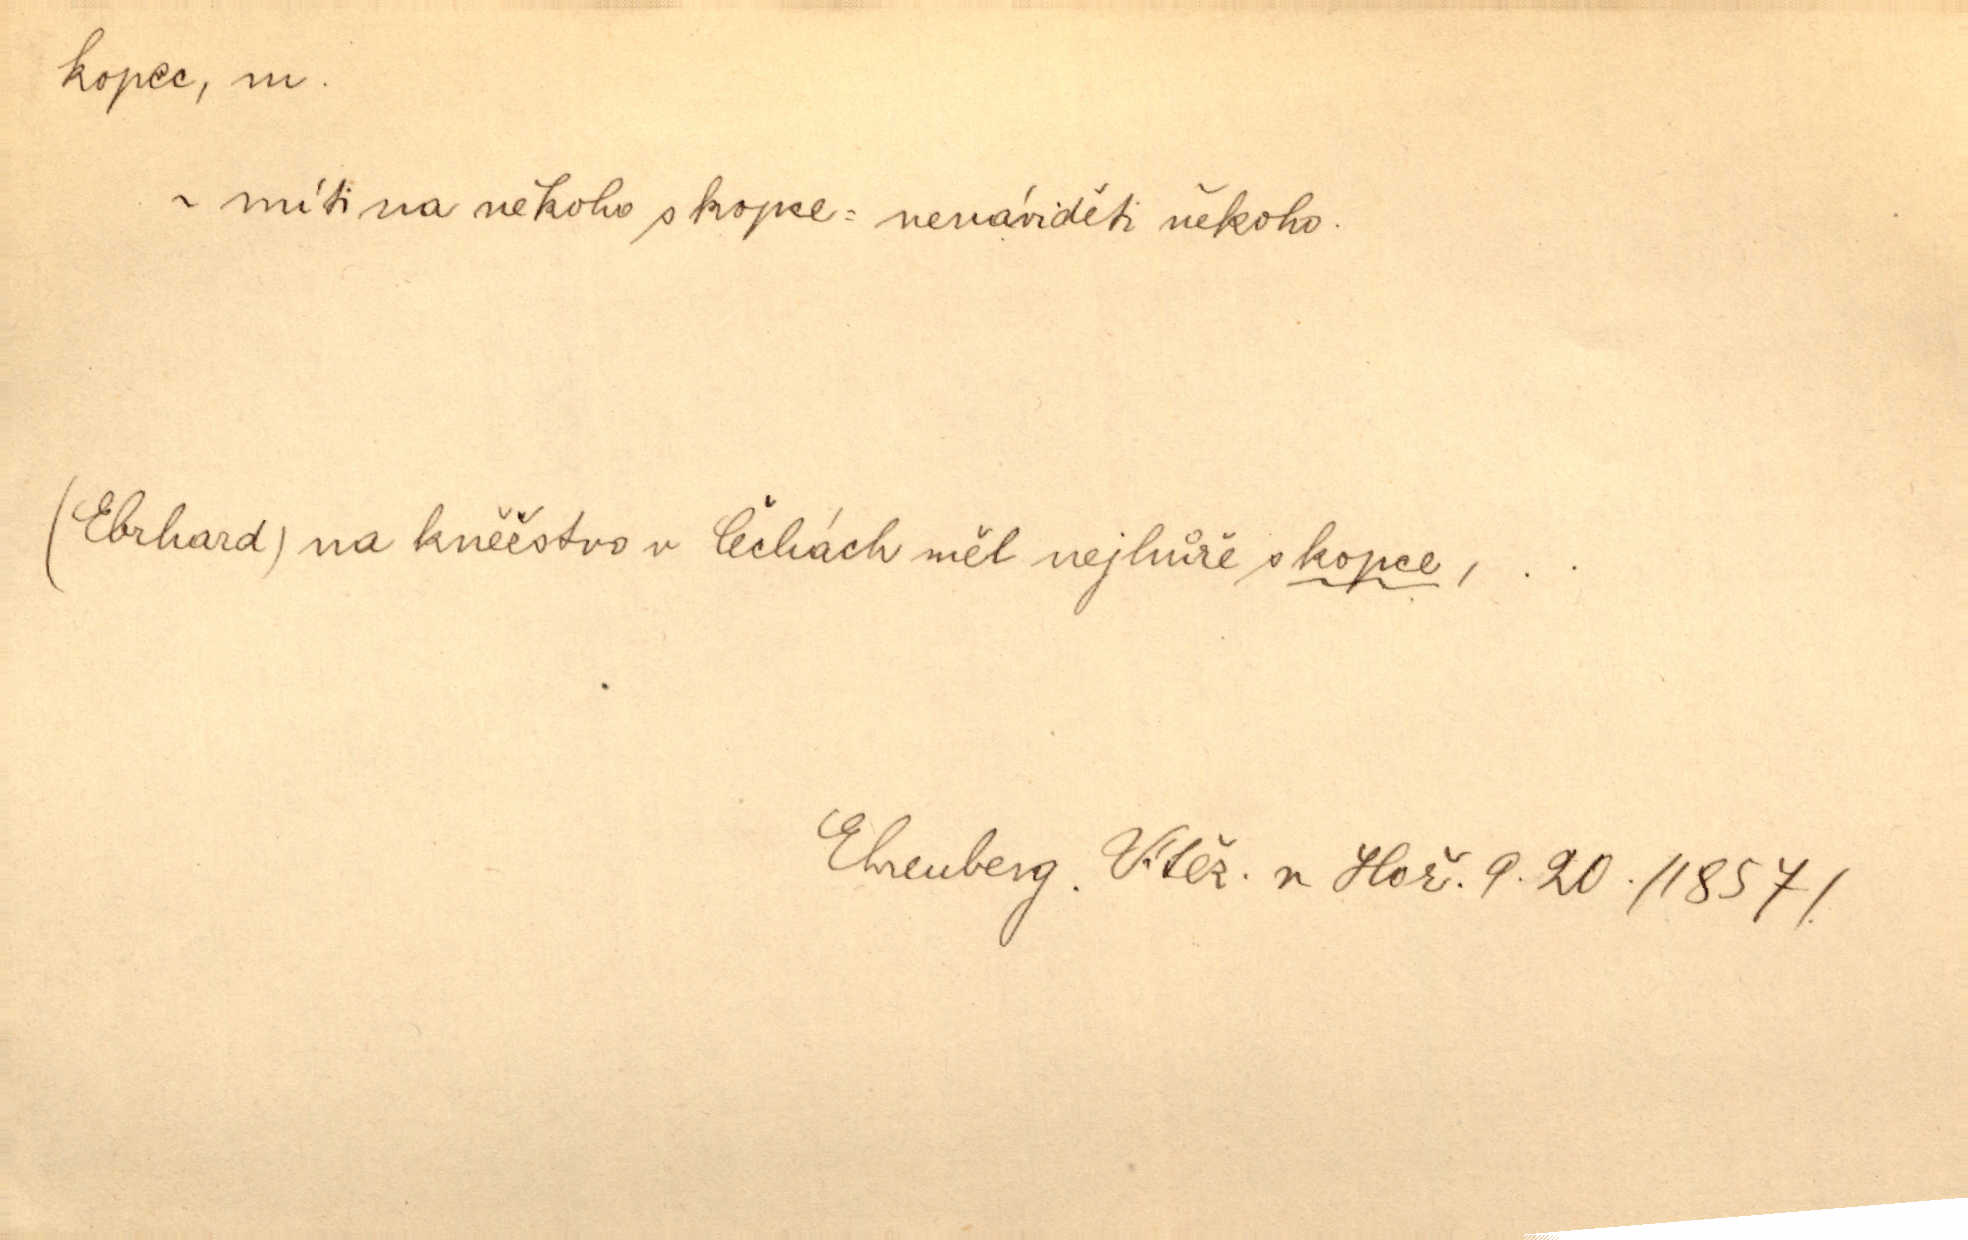 kopec, m.
~ míti na někoho s kopce = nenáviděti někoho.
(Ebrhard) na kněčstvo v Čechách měl nejhůře s kopce, . .
Ehrenberg. Vítěz. n Hoř. 9. 20. /1857/